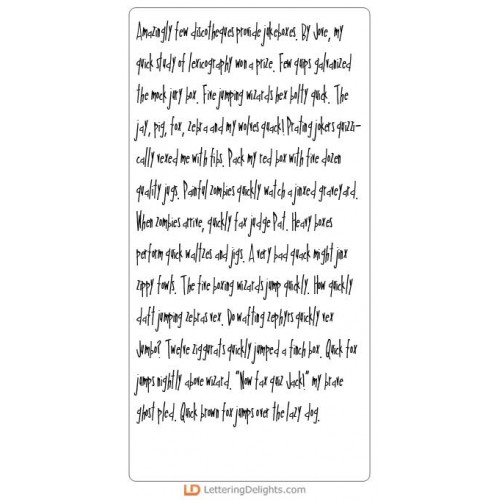 Amazingly few discotheques provide jukeboxes. By Jove, my
quick study of lexicography won a prize. Few quips galvanized
the mock jury box. Five jumping wizards hex bolty quick. The
jay, pig, fox, zebra and my wolves quack! Prating jokers quizzi-
cally vexed me with fibs. Pack my red box with five dozen
quality jugs. Painful zombies quickly watch a jinxed graveyard.
When zombies arrive, quickly fax judge Pat. Heavy boxes
perform quick waltzes and jigs. A very bad quack might jinx
zippy fowls. The five boxing wizards jump quickly. How quickly
daft jumping zebras vex. Do wafting zephyrs quickly vex
Jumbo? Twelve ziggurats quickly jumped a finch box. Quick fox
jumps nightly above wizard. "Now fax quiz Jack!" my brave
ghost pled. Quick brown fox jumps over the lazy dog.
LD LetteringDelights.com